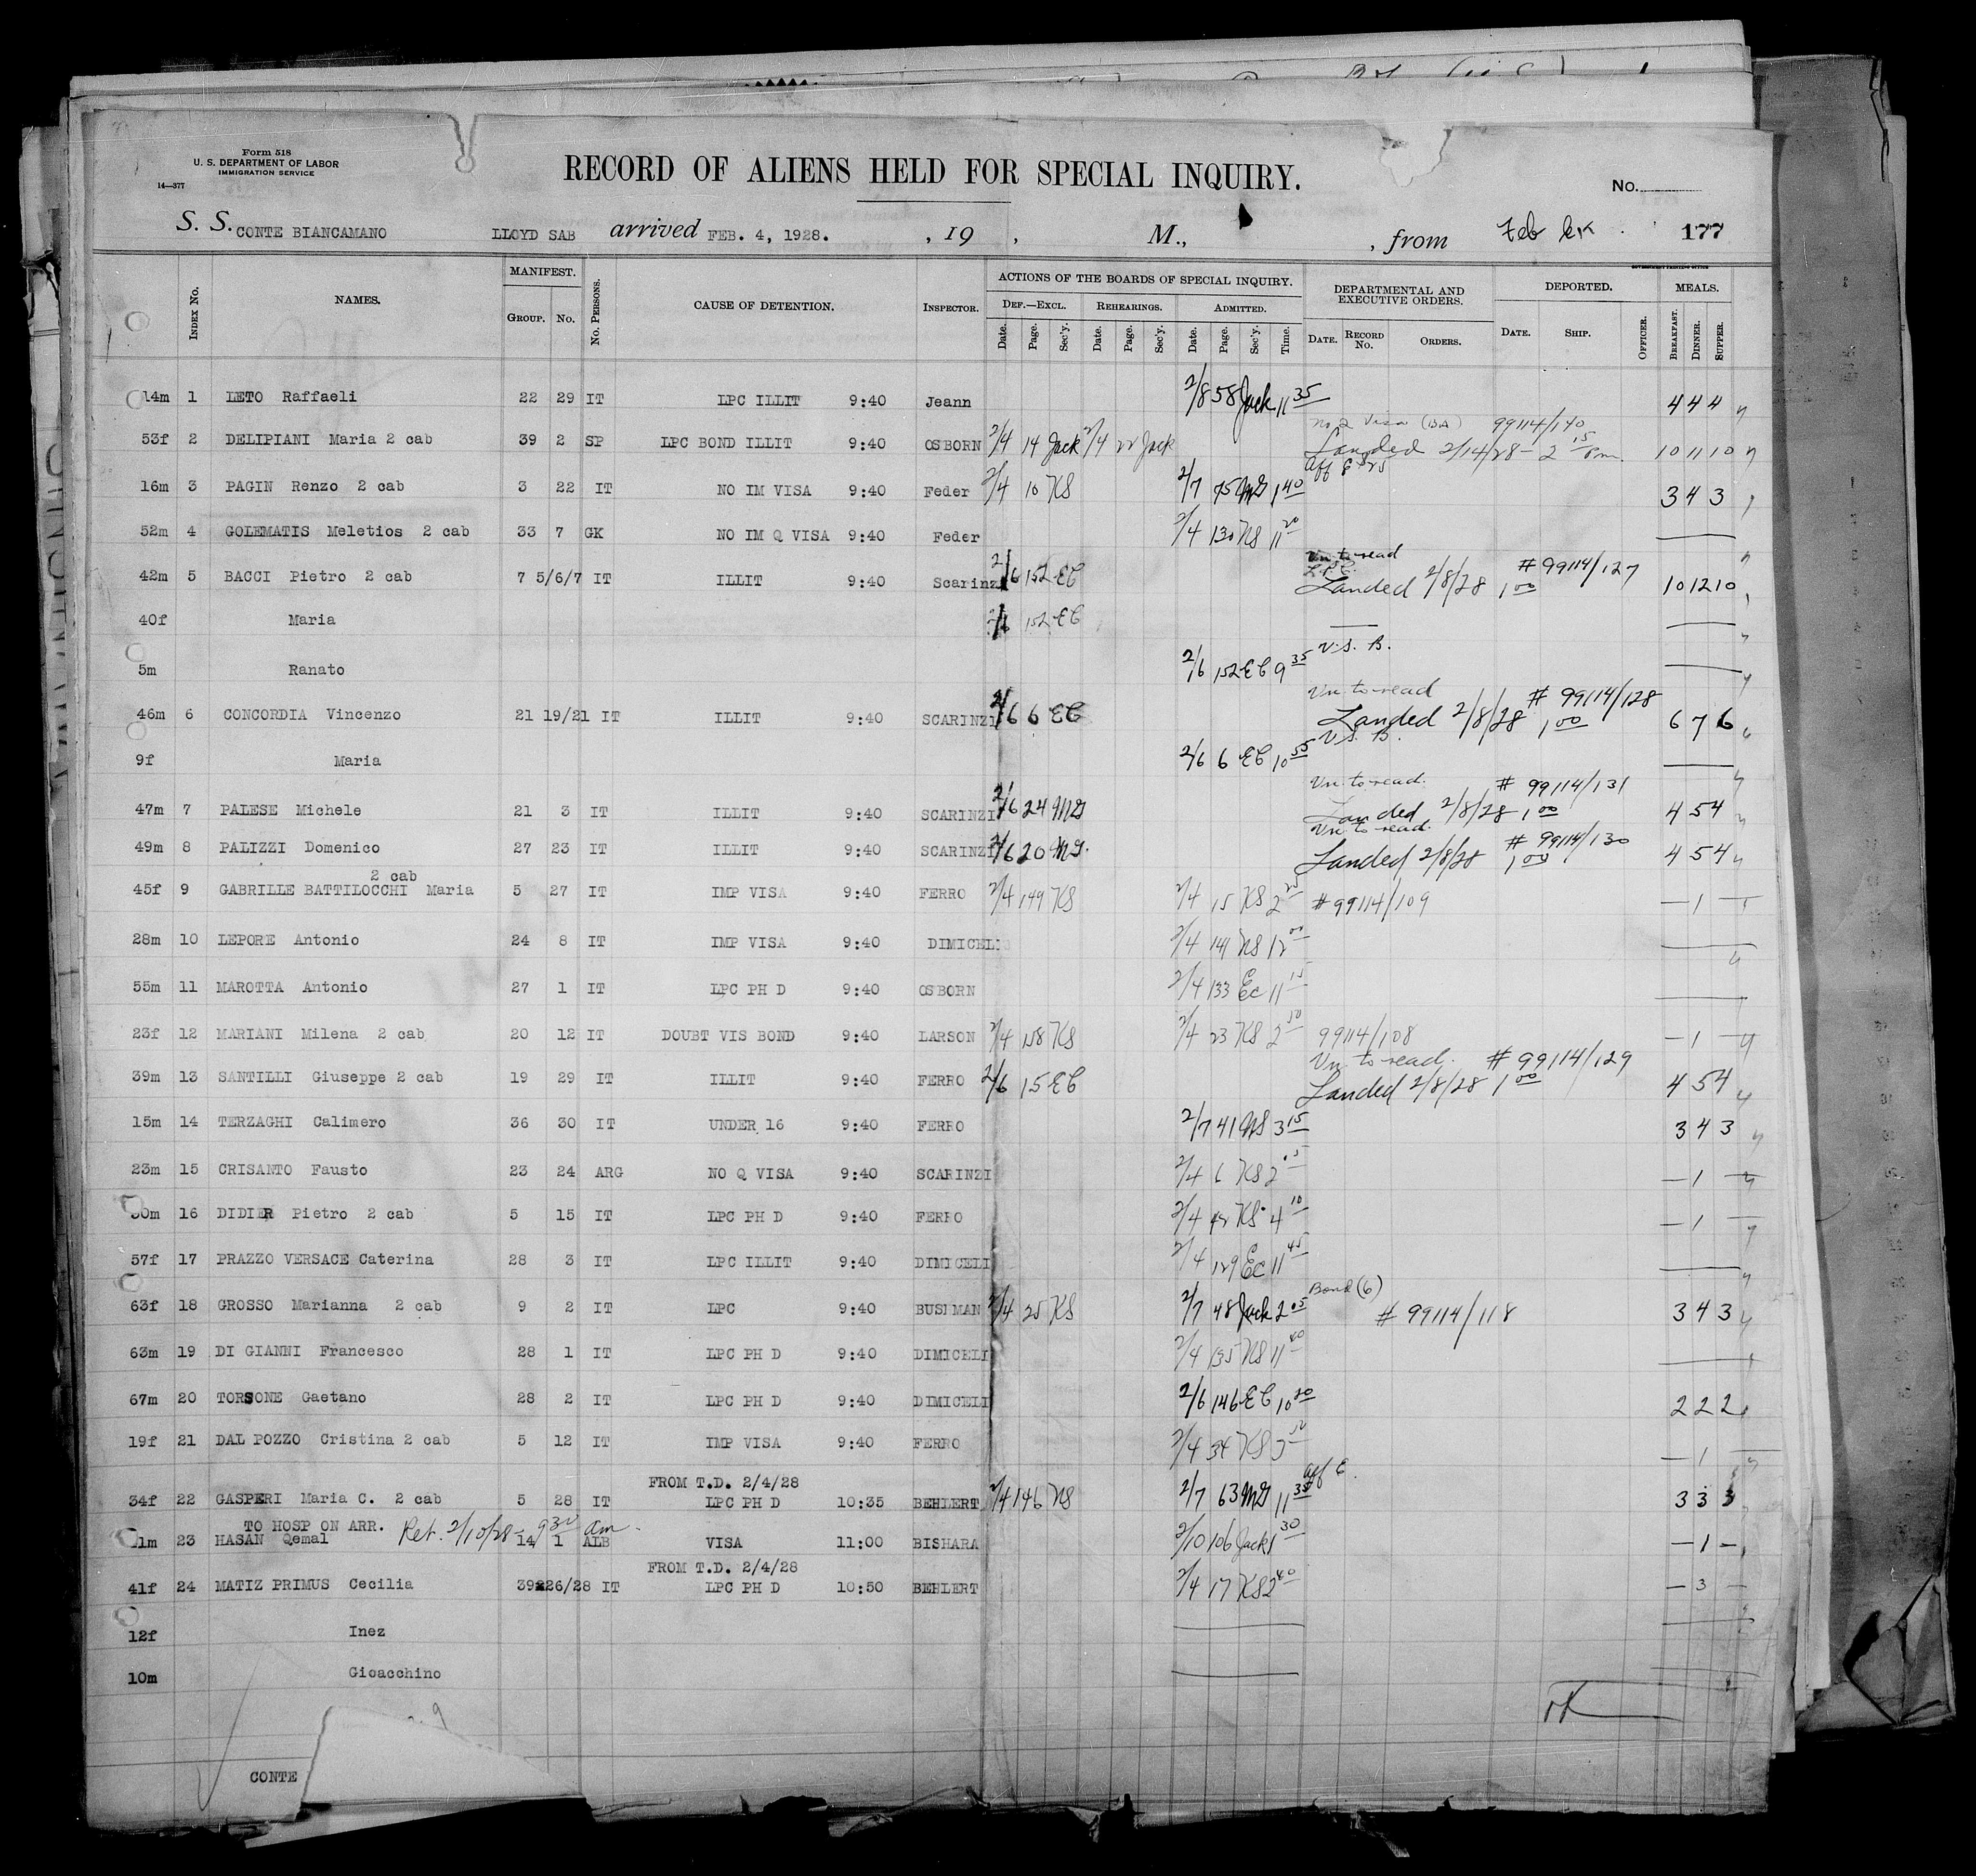 Form 518
U. S. DEPARTMENT OF LABOR
IMMIGRATION SERVICE
14—377
RECORD OF ALIENS HELD FOR SPECIAL INQUIRY.
No.
S. S. CONTE BIANCAMANO LLOYD SAB arrived FEB. 4, 1928. , 19 , M., , from Feb 177
GOVERNMENT PRINTING OFFICE
INDEX NO. NAMES. MANIFEST. GROUP. NO. NO. PERSONS. CAUSE OF DETENTION. INSPECTOR. ACTIONS OF THE BOARDS OF SPECIAL INQUIRY. DEPARTMENTAL AND EXECUTIVE ORDERS. DEPORTED. MEALS.
DEF.—EXCL. REHEARINGS. ADMITTED.
Date. Page. Sec'y. Date. Page. Sec'y. Date. Page. Sec'y. Time. DATE. RECORD NO. ORDERS. DATE. SHIP. OFFICER. BREAKFAST. DINNER. SUPPER.
14m 1 LETO Raffaeli 22 29 IT LPC ILLIT 9:40 Jeann 2/8 58 Jack 11 35 4 4 4
No 2 Visa (BA) 99114/140
53f 2 DELIPIANI Maria 2 cab 39 2 SP LPC BOND ILLIT 9:40 OSBORN 2/4 14 Jack 2/4 22 Jack Landed 2/14/28 - 2 15 Pm. 10 11 10
16m 3 PAGIN Renzo 2 cab 3 22 IT NO IM VISA 9:40 Feder 2/4 10 KS 2/7 75 MG 1 40 3 4 3
52m 4 GOLEMATIS Meletios 2 cab 33 7 GK NO IM Q VISA 9:40 Feder 2/4 130 KS 11 20
Un. to read
L.P.C. # 99114/127
42m 5 BACCI Pietro 2 cab 7 5/6/7 IT ILLIT 9:40 Scarinzi 2/6 152 EC Landed 2/8/28 1 00 10 12 10
40f Maria 2/6 152 EC
V.S. B.
5m Ranato 2/6 152 EC 9 35
Un to read # 99114/128
46m 6 CONCORDIA Vincenzo 21 19/21 IT ILLIT 9:40 SCARINZI 2/6 6 EC Landed 2/8/28 1 00 6 7 6
V.S. B.
9f Maria 2/6 6 EC 10 55
Un to read. # 99114/131
47m 7 PALESE Michele 21 3 IT ILLIT 9:40 SCARINZI 2/6 24 MG Landed 2/8/28 1 00 4 5 4
Un to read. # 99114/130
49m 8 PALIZZI Domenico 27 23 IT ILLIT 9:40 SCARINZI 2/6 20 MG. Landed 2/8/28 1 00 4 5 4
2 cab
45f 9 GABRILLE BATTILOCCHI Maria 5 27 IT IMP VISA 9:40 FERRO 2/4 149 KS 2/4 15 KS 2 25 # 99114/109 — 1 —
28m 10 LEPORE Antonio 24 8 IT IMP VISA 9:40 DIMICELI 2/4 141 KS 12 00
55m 11 MAROTTA Antonio 27 1 IT LPC PH D 9:40 OSBORN 2/4 133 EC 11 15
23f 12 MARIANI Milena 2 cab 20 12 IT DOUBT VIS BOND 9:40 LARSON 2/4 158 KS 2/4 23 KS 2 50 99114/108 — 1 —
Un to read. # 99114/129
39m 13 SANTILLI Giuseppe 2 cab 19 29 IT ILLIT 9:40 FERRO 2/6 15 EC Landed 2/8/28 1 00 4 5 4
15m 14 TERZAGHI Calimero 36 30 IT UNDER 16 9:40 FERRO 2/7 41 MS 3 15 3 4 3
23m 15 CRISANTO Fausto 23 24 ARG NO Q VISA 9:40 SCARINZI 2/4 6 KS 2 05 — 1 —
0m 16 DIDIER Pietro 2 cab 5 15 IT LPC PH D 9:40 FERRO 2/4 42 KS 4 10 — 1 —
57f 17 PRAZZO VERSACE Caterina 28 3 IT LPC ILLIT 9:40 DIMICELI 2/4 129 EC 11 45
Bond (6)
63f 18 GROSSO Marianna 2 cab 9 2 IT LPC 9:40 BUSHMAN 2/4 25 KS 2/7 48 Jack 2 05 # 99114/118 3 4 3
63m 19 DI GIANNI Francesco 28 1 IT LPC PH D 9:40 DIMICELI 2/4 135 KS 11 40
67m 20 TORSONE Gaetano 28 2 IT LPC PH D 9:40 DIMICELI 2/6 146 EC 10 20 2 2 2
19f 21 DAL POZZO Cristina 2 cab 5 12 IT IMP VISA 9:40 FERRO 2/4 34 KS 3 50 — 1 —
FROM T.D. 2/4/28
34f 22 GASPERI Maria C. 2 cab 5 28 IT LPC PH D 10:35 BEHLERT 2/4 146 KS 2/7 63 MG 11 35 Aff 6. 3 3 3
TO HOSP ON ARR. Ret. 2/10/28 - 9 30 am.
1m 23 HASAN Qemal 14 1 ALB VISA 11:00 BISHARA 2/10 106 Jack 1 30 — 1 —
FROM T.D. 2/4/28
41f 24 MATIZ PRIMUS Cecilia 39 26/28 IT LPC PH D 10:50 BEHLERT 2/4 17 KS 2 40 — 3 —
12f Inez
10m Gioacchino
CONTE